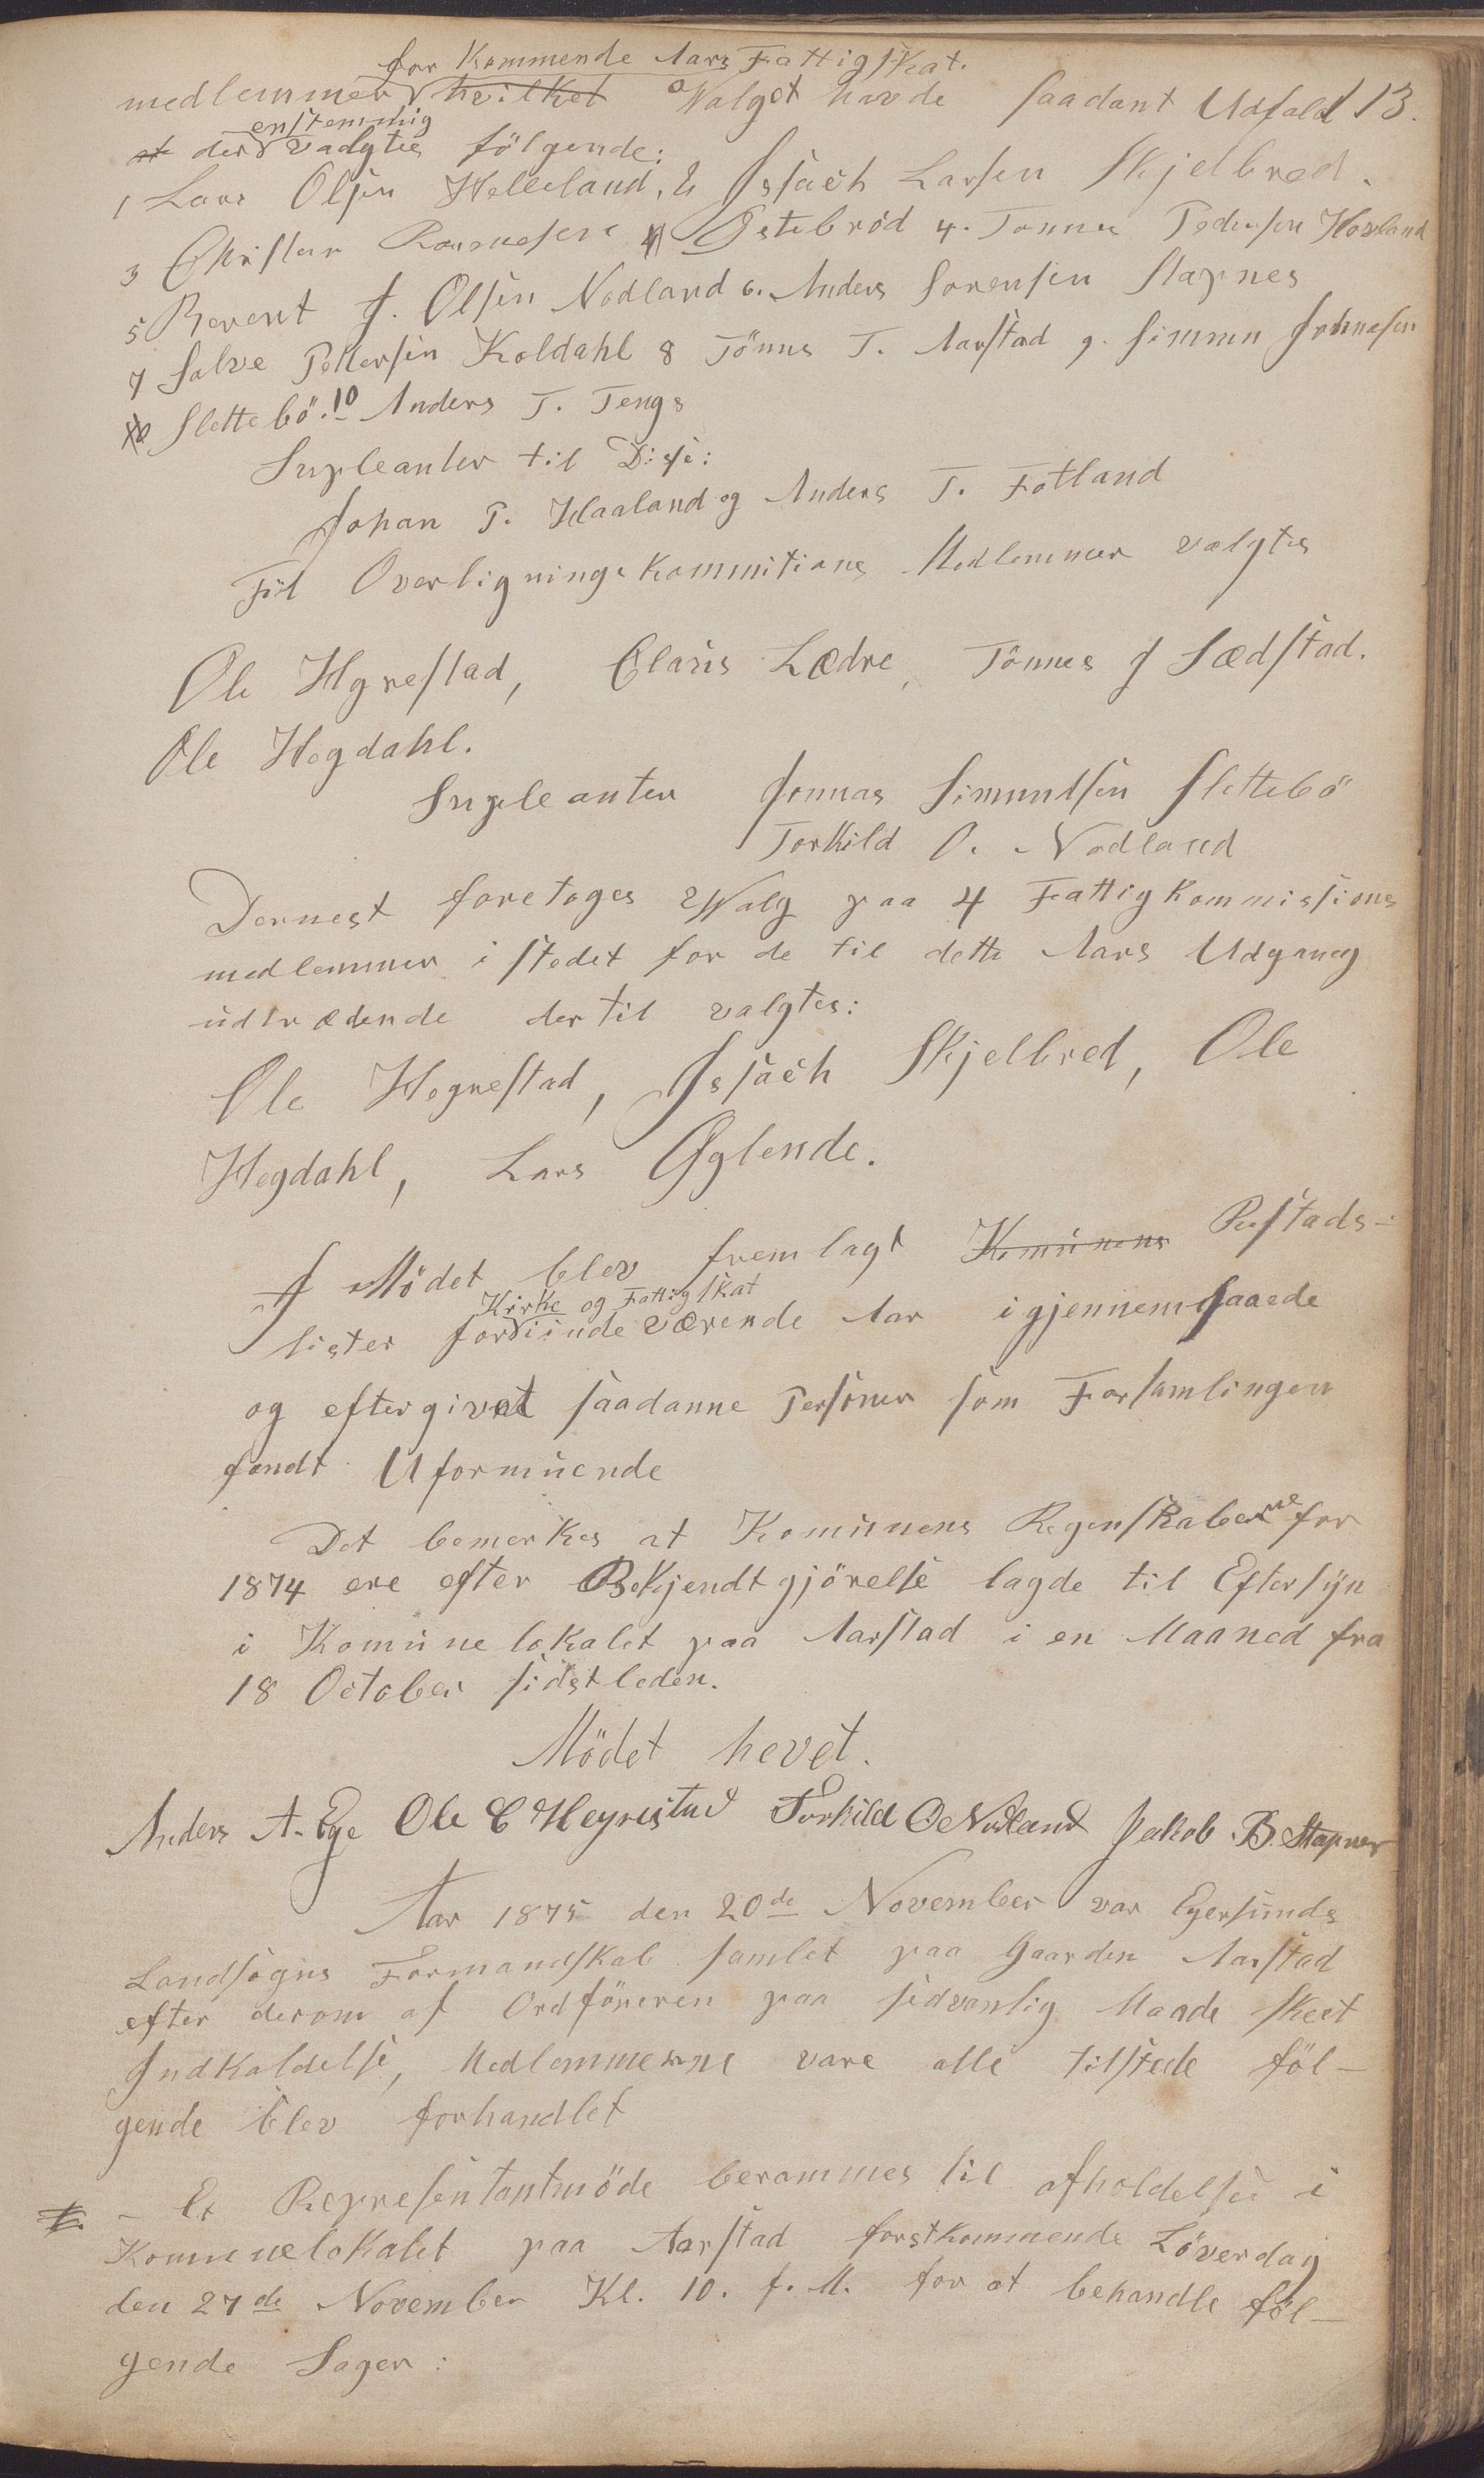 for Kommende Aars Fattigskat.
medlemmer hvilket Valget havde saadant Udfald 13.
enstemmig
at der valgtes fölgende:
1 Lars Olsen Helleland, 2 Issach Larsen Skjelbred.
3 Christen Rasmusen Ystebröd 4. Tønnes Pedersen Hovland
5 Berent J. Olsen Nodland 6. Anders Sorensen Stapnes
7 Salve Pettersen Koldahl 8 Tönnes T. Aarstad 9. Simmon Johnasen
Slettebö. 10 Anders T. Tengs
Supleanter til Disse:
Johan P. Haaland og Anders T. Fotland
Til Overligningskommitions Medlemmer valgtes
Ole Hgrestad, Claus Lædre, Tönnes J Sædstad.
Ole Hegdahl.
Supleanter Jonnas Simundsen Slettebö
Torkild O. Nodland
Dernest foretoges Valg paa 4 Fattigkommissions
medlemmer i stedet for de til dette Aars Udgang
udtrædende dertil valgtes:
Ole Hegrestad, Issach Skjelbred, Ole
Hegdahl, Lars Øglende.
I Mödet blev fremlagt Komunens Restads-
Kirke og Fattigskat
lister for indeværende Aar igjennemgaaede
og eftergivet saadanne Personer som Forsamlingen
fandt Uformuende
Det bemerkes at Komunens Regenskaberne for
1874 ere efter Bekjendtgjörelse lagde til Eftersyn
i Komunelokalet paa Aarstad i en Maaned fra
18 October sidstleden.
Mödet hevet.
Anders A. Ege Ole C Hegrestad Torkild O Nodland Jakob B. Stapnes
Aar 1875 den 20de November var Egersunds
Landsogns Formandskab samlet paa Gaarden Aarstad
efter derom af Ordföreren paa sedvanlig Maade skeet
Indkaldelse, Medlemmerne vare alle tilstede föl-
gende blev forhandlet
- Et Representantmöde berammes til afholdelse i
Komunelokalet paa Aarstad forstkommende Löverdag
den 27de November Kl. 10. f. M. for at behandle föl-
gende Sager: